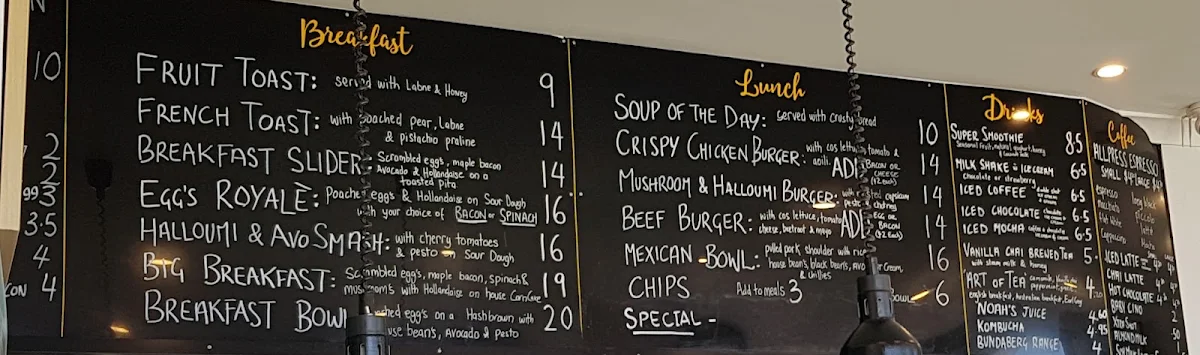 N
10
2
2
99 3
3.5
4
CON 4
Breakfast
FRUIT TOAST: served with Labne & Honey 9
FRENCH TOAST: with poached pear, Labne
& pistachio praline 14
BREAKFAST SLIDER: Scrambled egg's, maple bacon
Avocado & Hollandaise on a
toasted pita 14
EGG'S ROYALE: Poached egg's & Hollandaise on Sour Dough
with your choice of BACON or SPINACH 16
HALLOUMI & AVO SMASH: with cherry tomatoes
& pesto on Sour Dough 16
BIG BREAKFAST: Scrambled egg's, maple bacon, spinach &
mushroom's with Hollandaise on house 19
BREAKFAST BOWL: on a Hashbrown with
bean's, Avocado & Pesto 20
Lunch
SOUP OF THE DAY: served with crusty bread 10
CRISPY CHICKEN BURGER: with cos lettuce, tomato &
aoili. ADD BACON OR
CHEESE 14
MUSHROOM & HALLOUMI BURGER: with capsicum
14
BEEF BURGER: with cos lettuce, tomato
cheese, beetroot & mayo ADD EGG OR
BACON 14
MEXICAN BOWL: pulled pork shoulder with
house bean's, black bean's, Cream,
& chillies 16
CHIPS Add to meals 3 BOWL 6
SPECIAL -
Drinks
SUPER SMOOTHIE 8.5
MILK SHAKE ICECREAM 6.5
chocolate or strawberry
ICED COFFEE 6.5
ICED CHOCOLATE 6.5
ICED MOCHA 6.5
VANILLA CHAI BREWED TEA 5
with steam milk & honey
'ART OF TEA' 4
english breakfast, Australian breakfast, Earl Grey
NOAH'S JUICE 4.60
KOMBUCHA 4.95
BUNDABERG RANGE 4
Coffee
ALLPRESS ESPRESSO
SMALL LARGE
espresso long black
macchiato piccolo
flat white latte
Cappuccino Mocha
ICED LATTE
CHAI LATTE
HOT CHOCOLATE
BABY CINO
EXTRA SHOT
ALMOND MILK